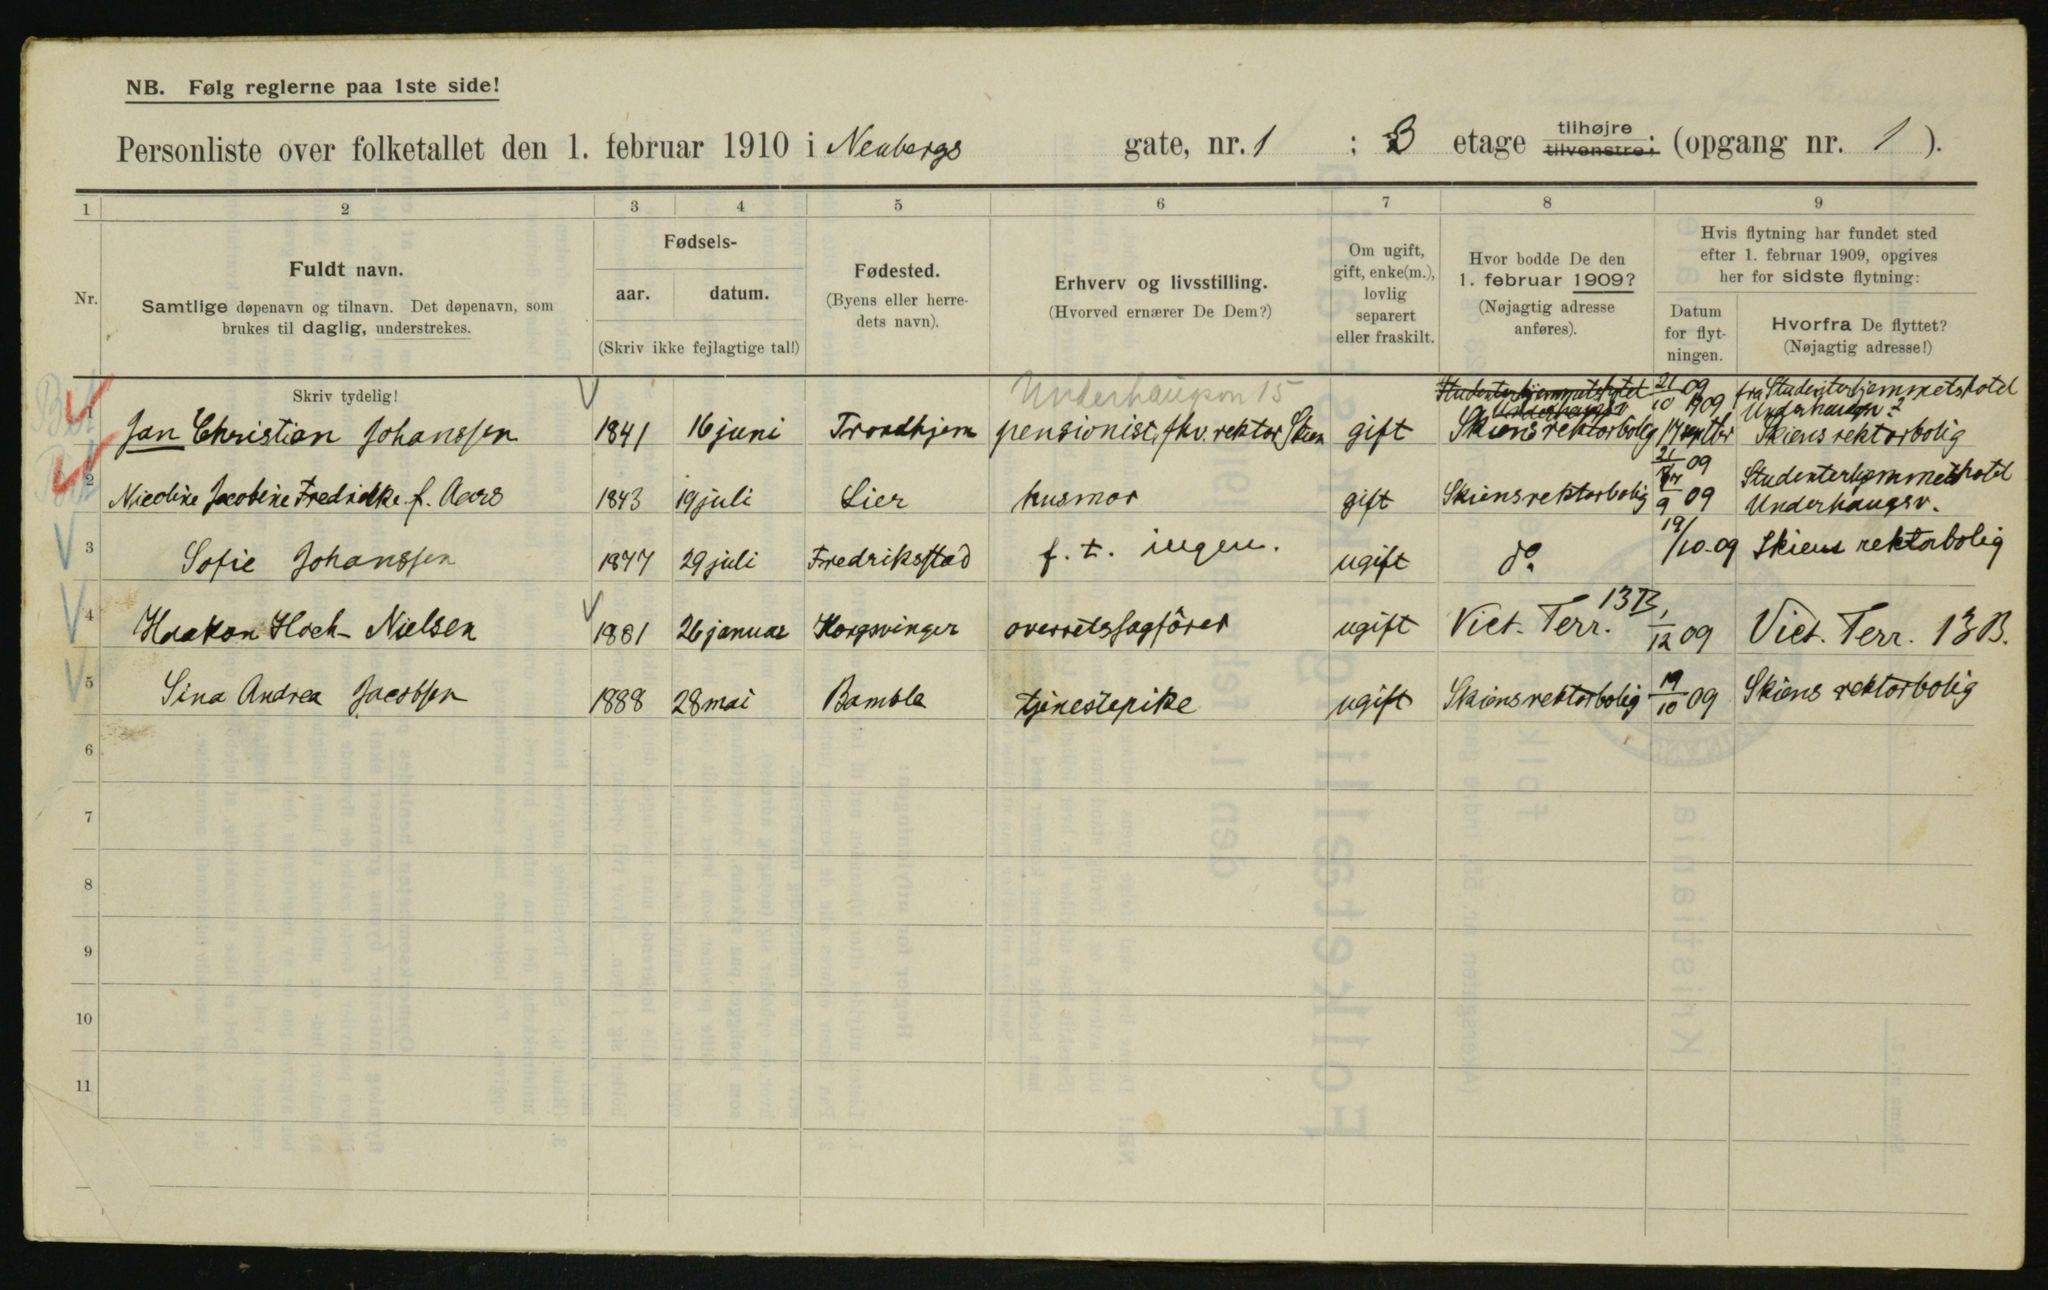 NB. Følg reglerne paa 1ste side!
Personliste over folketallet den 1. februar 1910 i Neubergs gate, nr. 1 : 3 etage tilhøjre tilvenstre; (opgang nr. 1 ).
1 2 3 4 5 6 7 8 9
Nr.
Fuldt navn.
Samtlige døpenavn og tilnavn. Det døpenavn, som
brukes til daglig, understrekes.
Fødsels-
aar. datum.
(Skriv ikke fejlagtige tal!)
Fødested.
(Byens eller herre-
dets navn).
Erhverv og livsstilling.
(Hvorved ernærer De Dem?)
Om ugift,
gift, enke(m.),
lovlig
separert
eller fraskilt.
Hvor bodde De den
1. februar 1909?
(Nøjagtig adresse
anføres).
Hvis flytning har fundet sted
efter 1. februar 1909, opgives
her for sidste flytning:
Datum
for flyt-
ningen.
Hvorfra De flyttet?
(Nøjagtig adresse!)
Skriv tydelig!
Underhaugsvn 15
Studenterhjemmets hotel 21/10 09 fra Studenterhjemmets hotel
Underhaugsv 1909 Underhaugsv.
1 Jan Christian Johanssen 1841 16 juni Trondhjem pensionist, fhv. rektor Skien gift Skiens rektorbolig 17 septbr Skiens rektorbolig
21 09 Studenterhjemmets hotel
2 Nicoline Jacobine Fredrikke f. Aars 1843 19 juli Lier husmor gift Skiens rektorbolig 9 09 Underhaugsv.
3 Sofie Johanssen 1877 29 juli Fredriksstad f. t. ingen. ugift do 19/10-09 Skiens rektorbolig
4 Haakon Hoch-Nielsen 1881 26 januar Kongsvinger overretssagfører ugift Vict. Terr. 13B, 1/12 09 Vict. Terr. 13B.
5 Sina Andrea Jacobsen 1888 28 mai Bamble tjenestepike ugift Skiens rektorbolig 19/10 09 Skiens rektorbolig
6
7
8
9
10
11